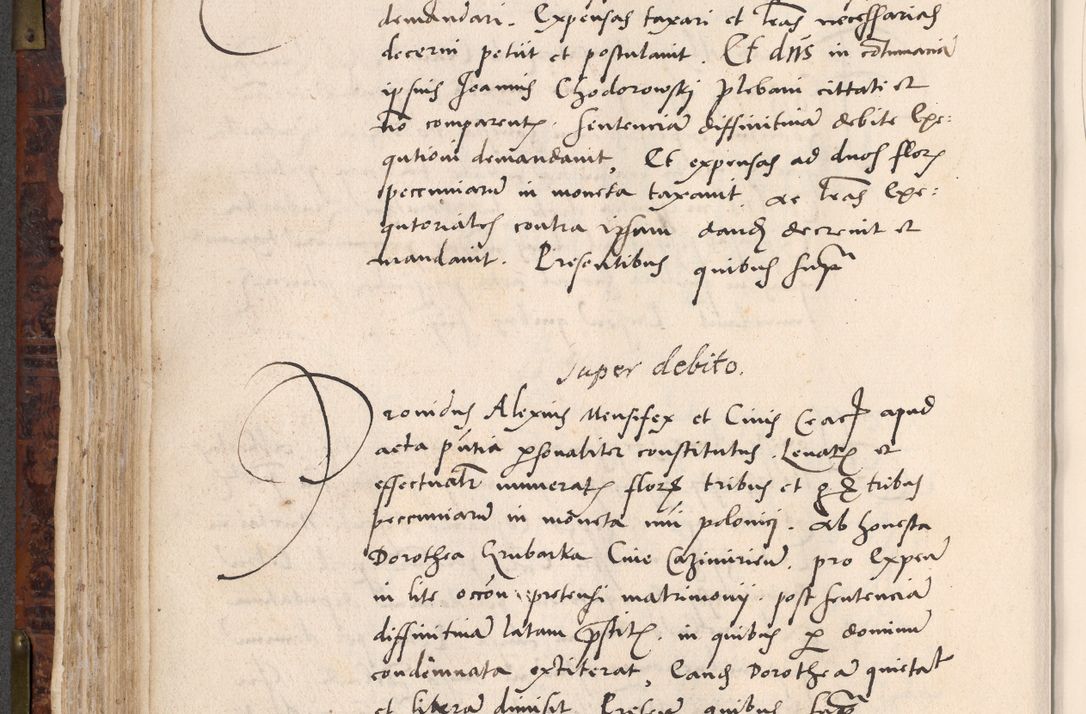 demandari. Expensas taxari et l̃ras necessarias
decerni petiit et postulavit. Et dn̄s in cōtumaciā
ipsius Joannis Chodorowskj Plebani cittati et
nō comparent. Sentenciā diffinitivā debite Exe:
qutioni demandavit, Et expensas ad duos flor
pecuniarū in moneta taxavit. ac l̃ras Exe:
qutoriales contra ipsum dand decrevit et
mandavit. Presentibus quibus supra
super debito.
Providus Alexius Mensifex et Civis Crac apud
acta pn̄tia personaliter constitutus. Levat et
effectualr̄ numerat flor tribus et gr tribus
peccuniarū in moneta nūi polonicj. Ab honesta
Dorothea Grubarka Cive Cazimirien̄. pro Expen̄
in lite occōn pretensi matrimonij. post sentenciā
diffinitivā latam prestit. in quibus per dominū
condēmnata extiterat, Eand Dorotheā quietat
et liberā dimisit. Presen̄ quibus supra